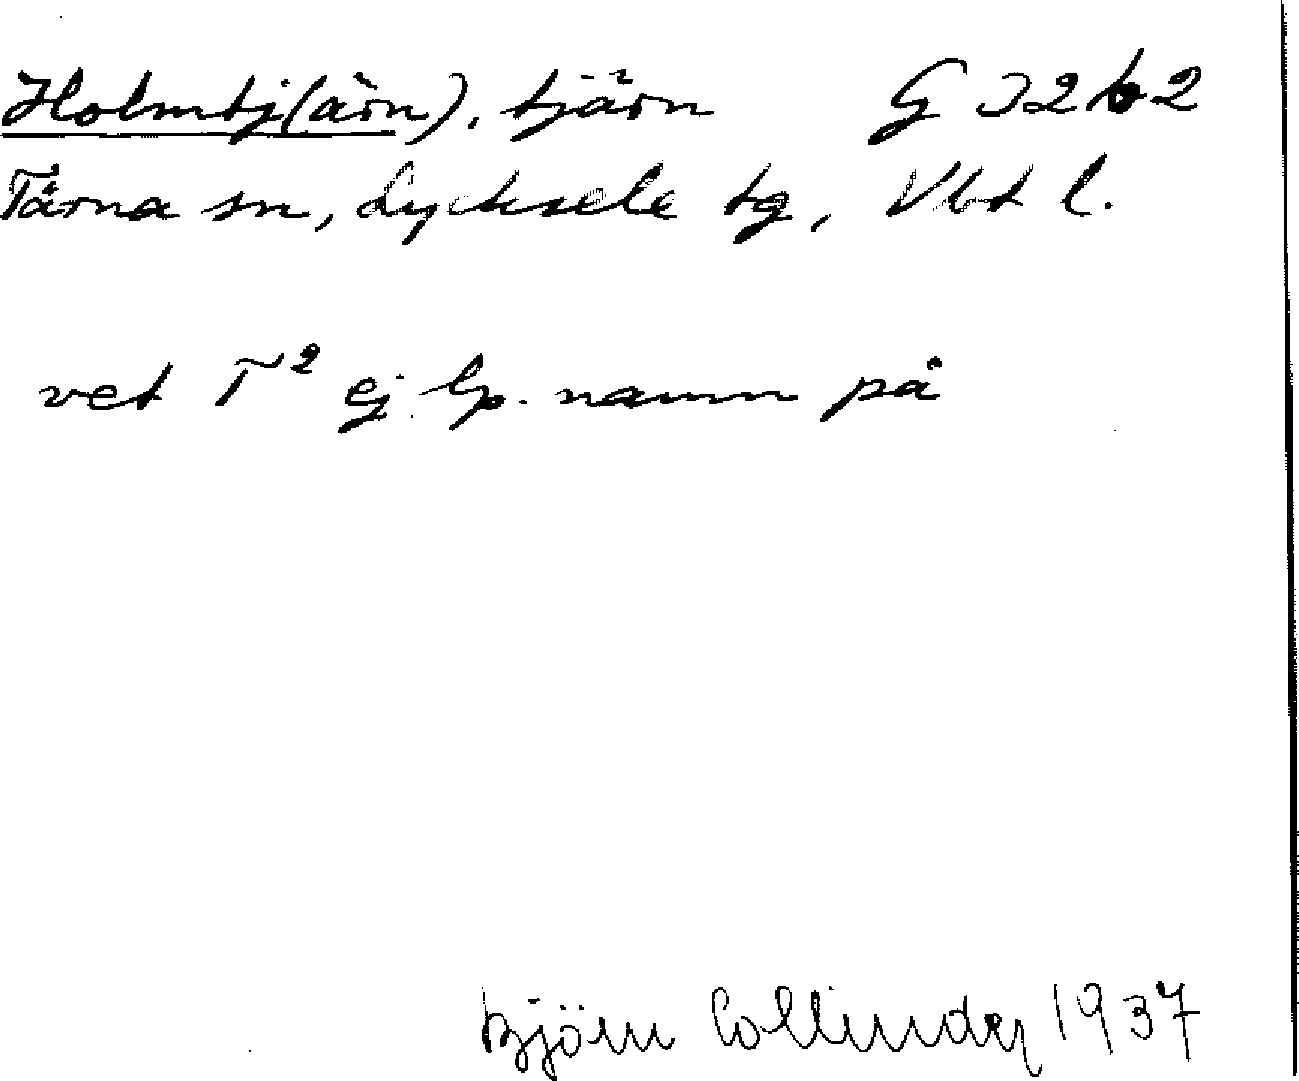 Holmtj(ärn), tjärn G 32b2
Tärna sn, Lycksele tg, Vbt l.
vet T² ej lp. namn på
Björn Collinder 1937